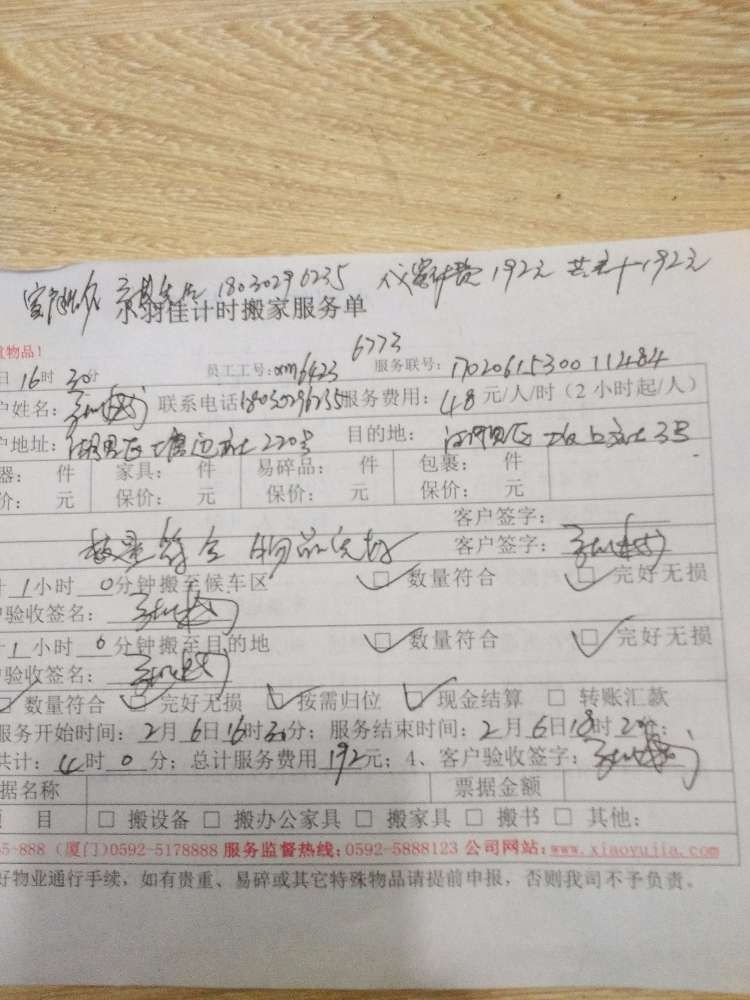 18030296235 192元 192元
小羽佳计时搬家服务单
物品！
6773
日 16时 30分 员工工号：xm6423 服务联号：1702061530011484
户姓名： 联系电话18030296235服务费用：48元/人/时（2小时起/人）
户地址：湖里区塘边社220号 目的地：湖里区 社3号
器： 件 家具： 件 易碎品： 件 包裹： 件
价： 元 保价： 元 保价： 元 保价： 元
客户签字：
数量符合 物品完好 客户签字：
计 1小时 0分钟搬至候车区 □ 数量符合 □ 完好无损
户验收签名：
计 1小时 0分钟搬至目的地 □ 数量符合 □ 完好无损
户验收签名：
□ 数量符合 □ 完好无损 □ 按需归位 □ 现金结算 □ 转账汇款
服务开始时间：2月6日16时30分；服务结束时间：2月6日18时20分；
共计：4时0分；总计服务费用192元；4、客户验收签字：
据名称 票据金额
项 目 □ 搬设备 □ 搬办公家具 □ 搬家具 □ 搬书 □ 其他：
5-888（厦门）0592-5178888 服务监督热线：0592-5888123 公司网站：www.xiaoyujia.com
好物业通行手续，如有贵重、易碎或其它特殊物品请提前申报，否则我司不予负责。